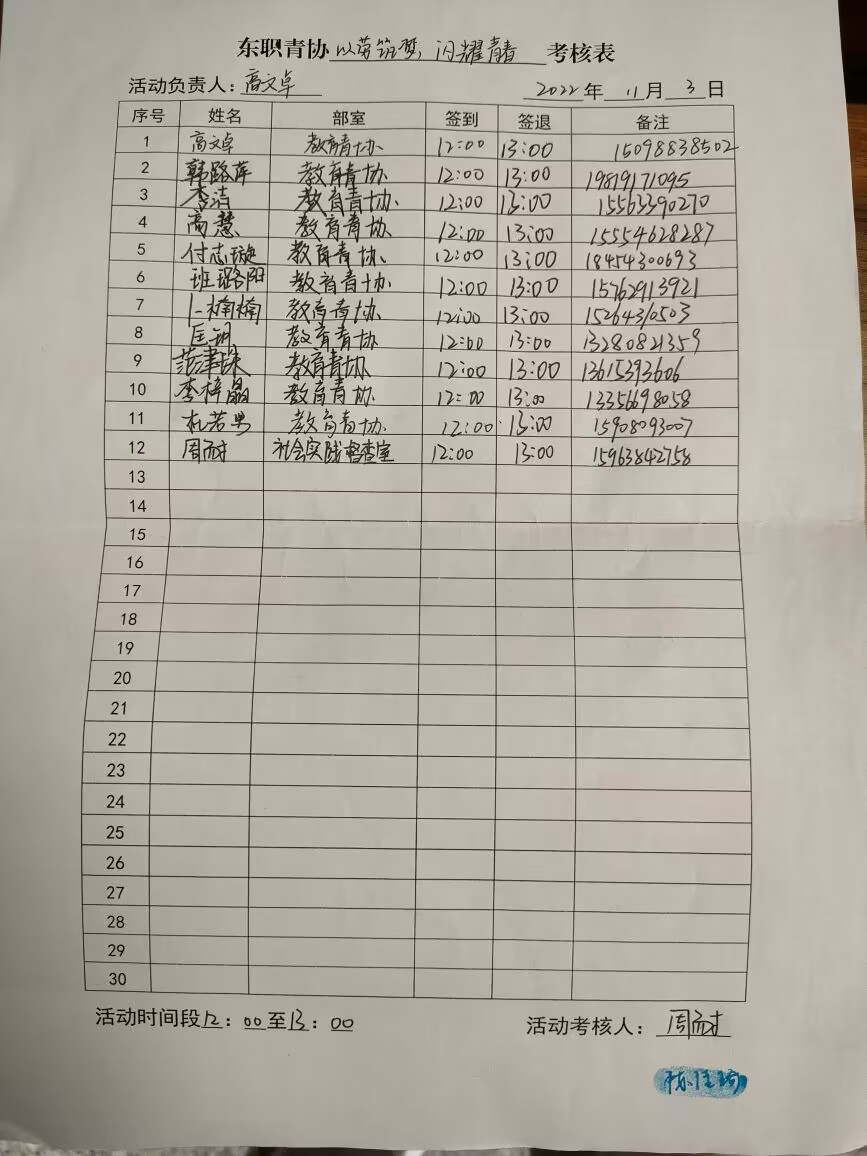 东职青协以劳筑梦,闪耀青春考核表
活动负责人：高文卓 2022年11月3日
序号 姓名 部室 签到 签退 备注
1 高文卓 教育青协 12:00 13:00 15098838502
2 韩路萍 教育青协 12:00 13:00 19819171095
3 李洁 教育青协 12:00 13:00 15563390270
4 高慧 教育青协 12:00 13:00 15554628287
5 付志璇 教育青协 12:00 13:00 18454300693
6 班璐阳 教育青协 12:00 13:00 15762913921
7 卜楠楠 教育青协 12:00 13:00 15264310503
8 匡 教育青协 12:00 13:00 13280821359
9 范津珠 教育青协 12:00 13:00 13615393606
10 李梓晶 教育青协 12:00 13:00 13356698058
11 杜若男 教育青协 12:00 13:00 15908093007
12 周耐 社会实践督查室 12:00 13:00 15963842758
13
14
15
16
17
18
19
20
21
22
23
24
25
26
27
28
29
30
活动时间段12：00至13：00 活动考核人：周耐